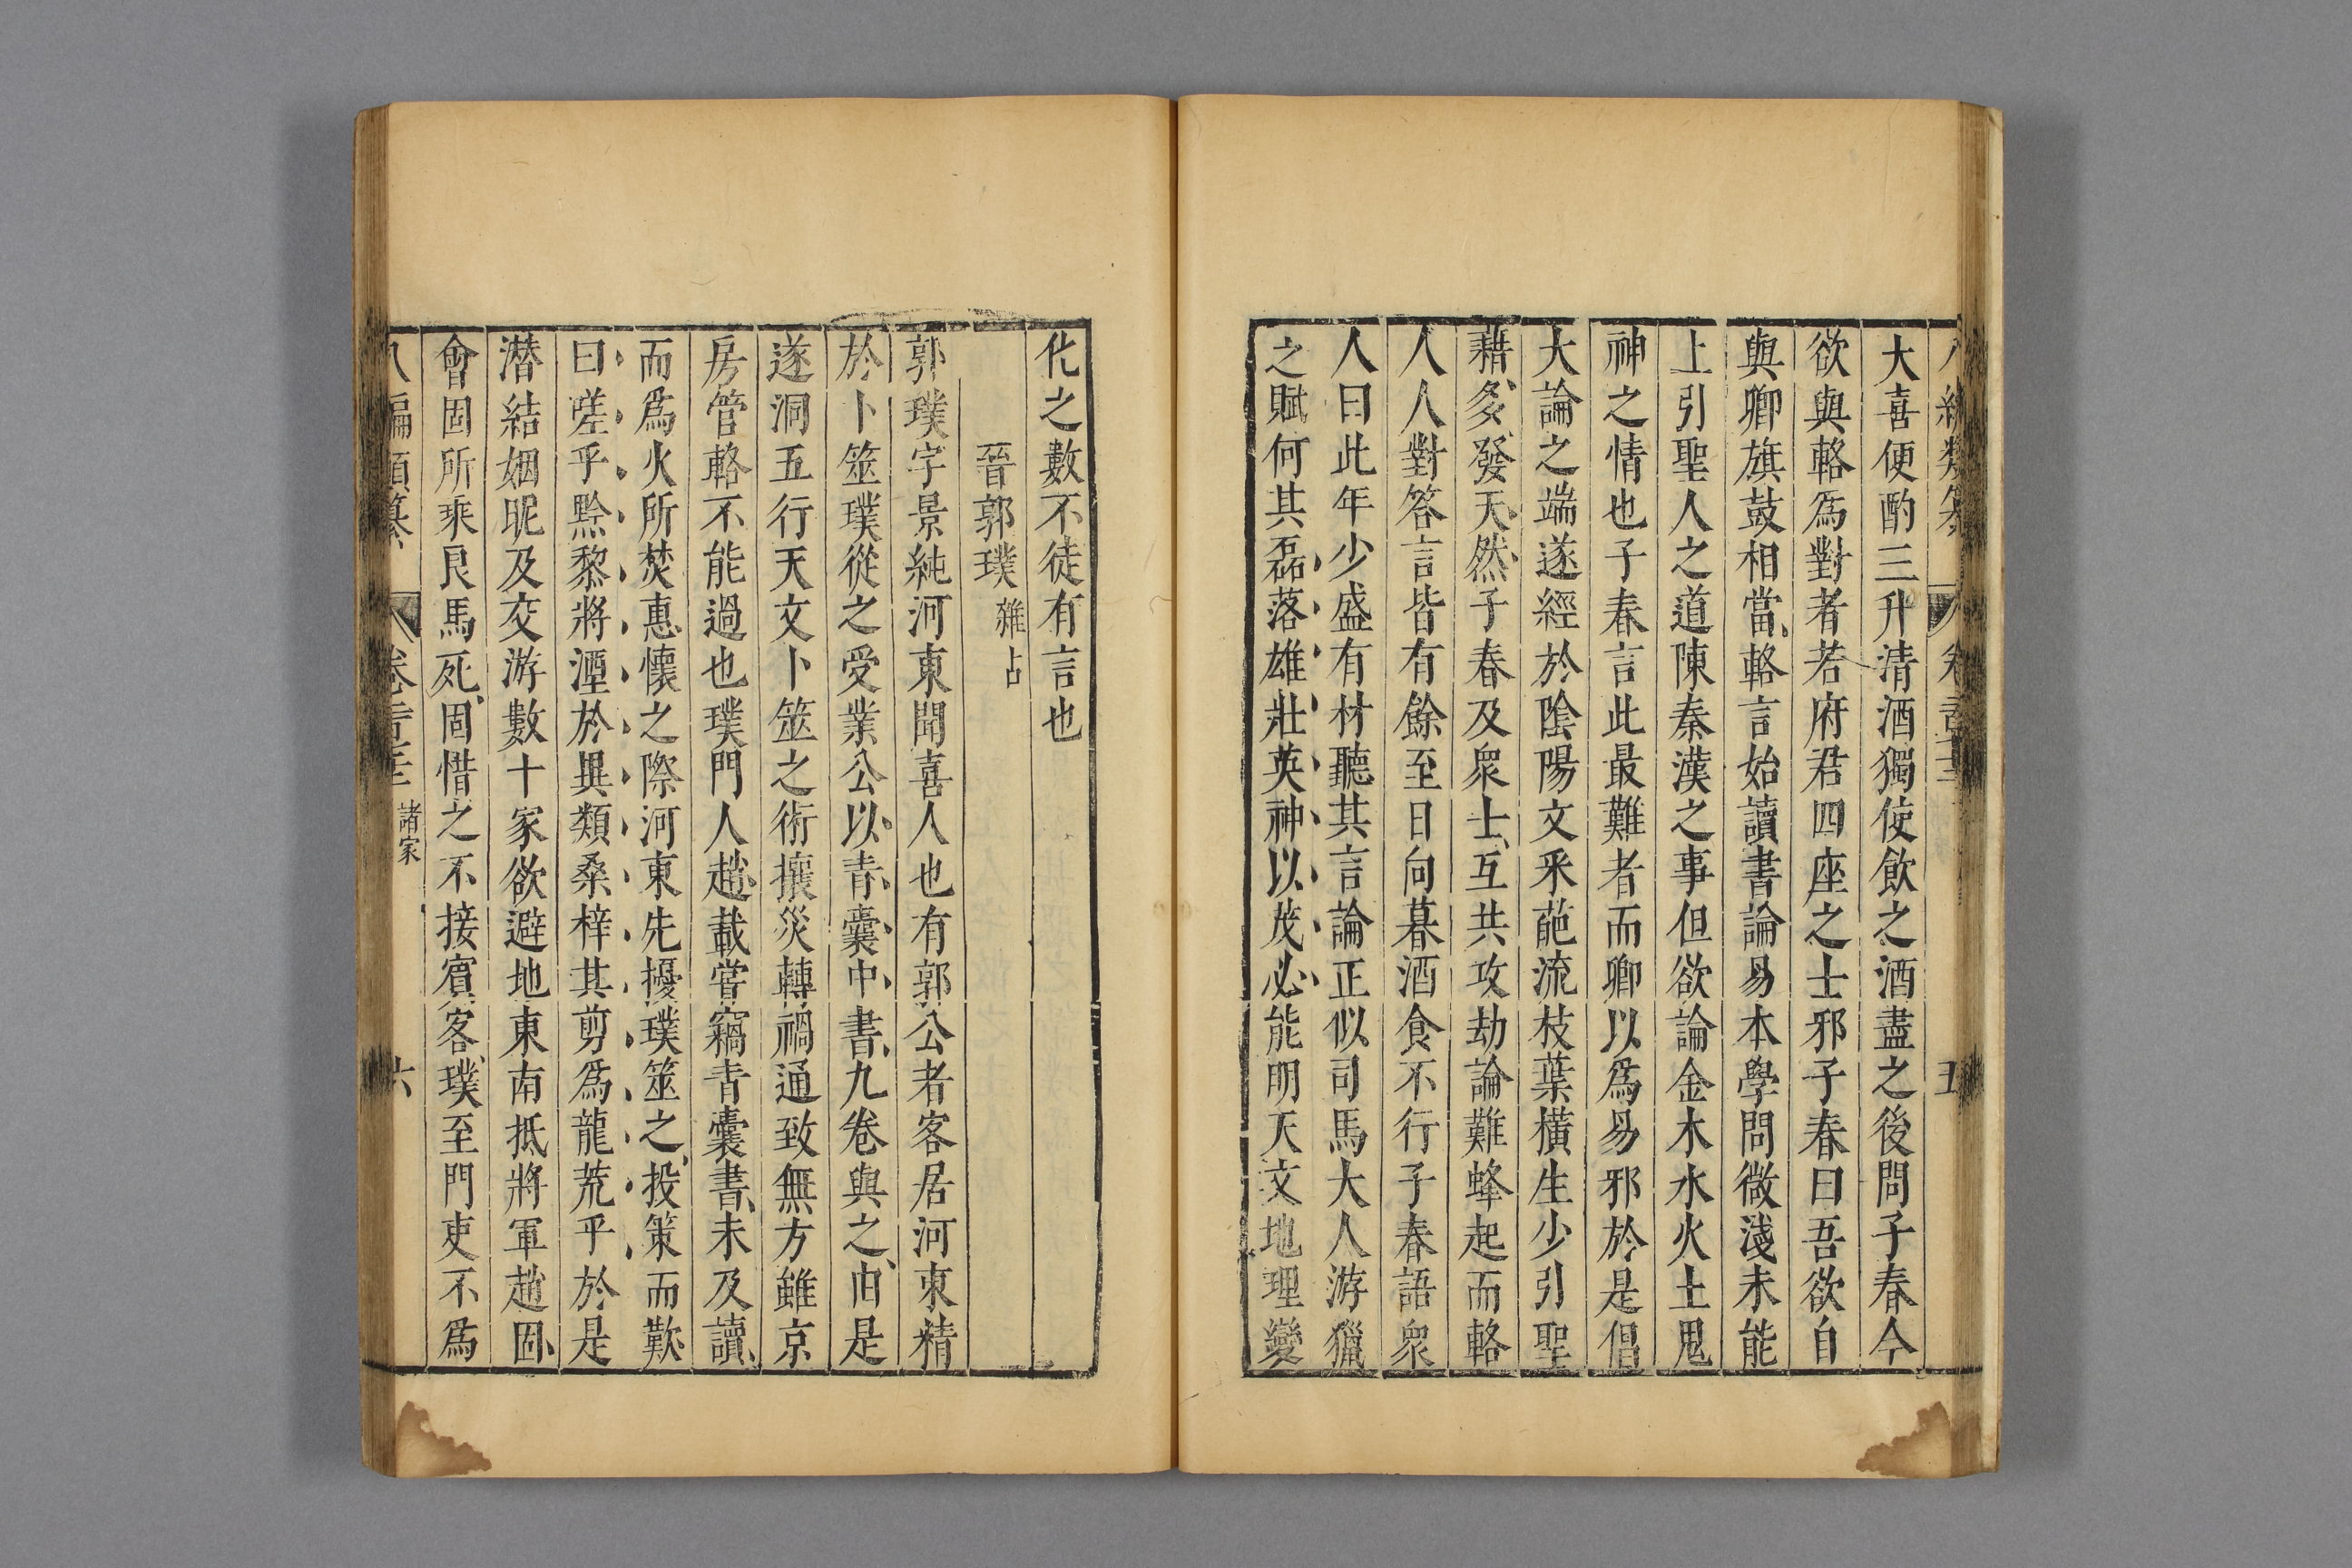 大喜便酌三升清酒獨使飲之酒盡之後問子春今
欲與輅爲對者若府君四座之士邪子春曰吾欲自
與卿旗鼓相當輅言始讀書論易本學問微淺未能
上引聖人之道陳秦漢之事但欲論金木水火土鬼
神之情也子春言此最難者而卿以爲易邪於是倡
大論之端遂經於陰陽文采葩流枝葉橫生少引聖
藉多發天然子春及衆士互共攻劫論難蜂起而輅
人人對答言皆有餘至日向暮酒食不行子春語衆
人曰此年少盛有材聽其言論正似司馬大人游獵
之賦何其磊落雄壯英神以茂必能明天文地理變
化之數不徒有言也
晉郭璞 雜占
郭璞字景純河東聞喜人也有郭公者客居河東精
於卜筮璞從之受業公以青囊中書九卷與之由是
遂洞五行天文卜筮之術攘災轉禍通致無方雖京
房管輅不能過也璞門人趙載嘗竊青囊書未及讀
而爲火所焚惠懷之際河東先擾璞筮之投策而歎
曰嗟乎黔黎將湮於異類桑梓其剪爲龍荒乎於是
潛結姻昵及交游數十家欲避地東南抵將軍趙固
會固所乘良馬死固惜之不接賓客璞至門吏不爲
八編類纂 諸家 六